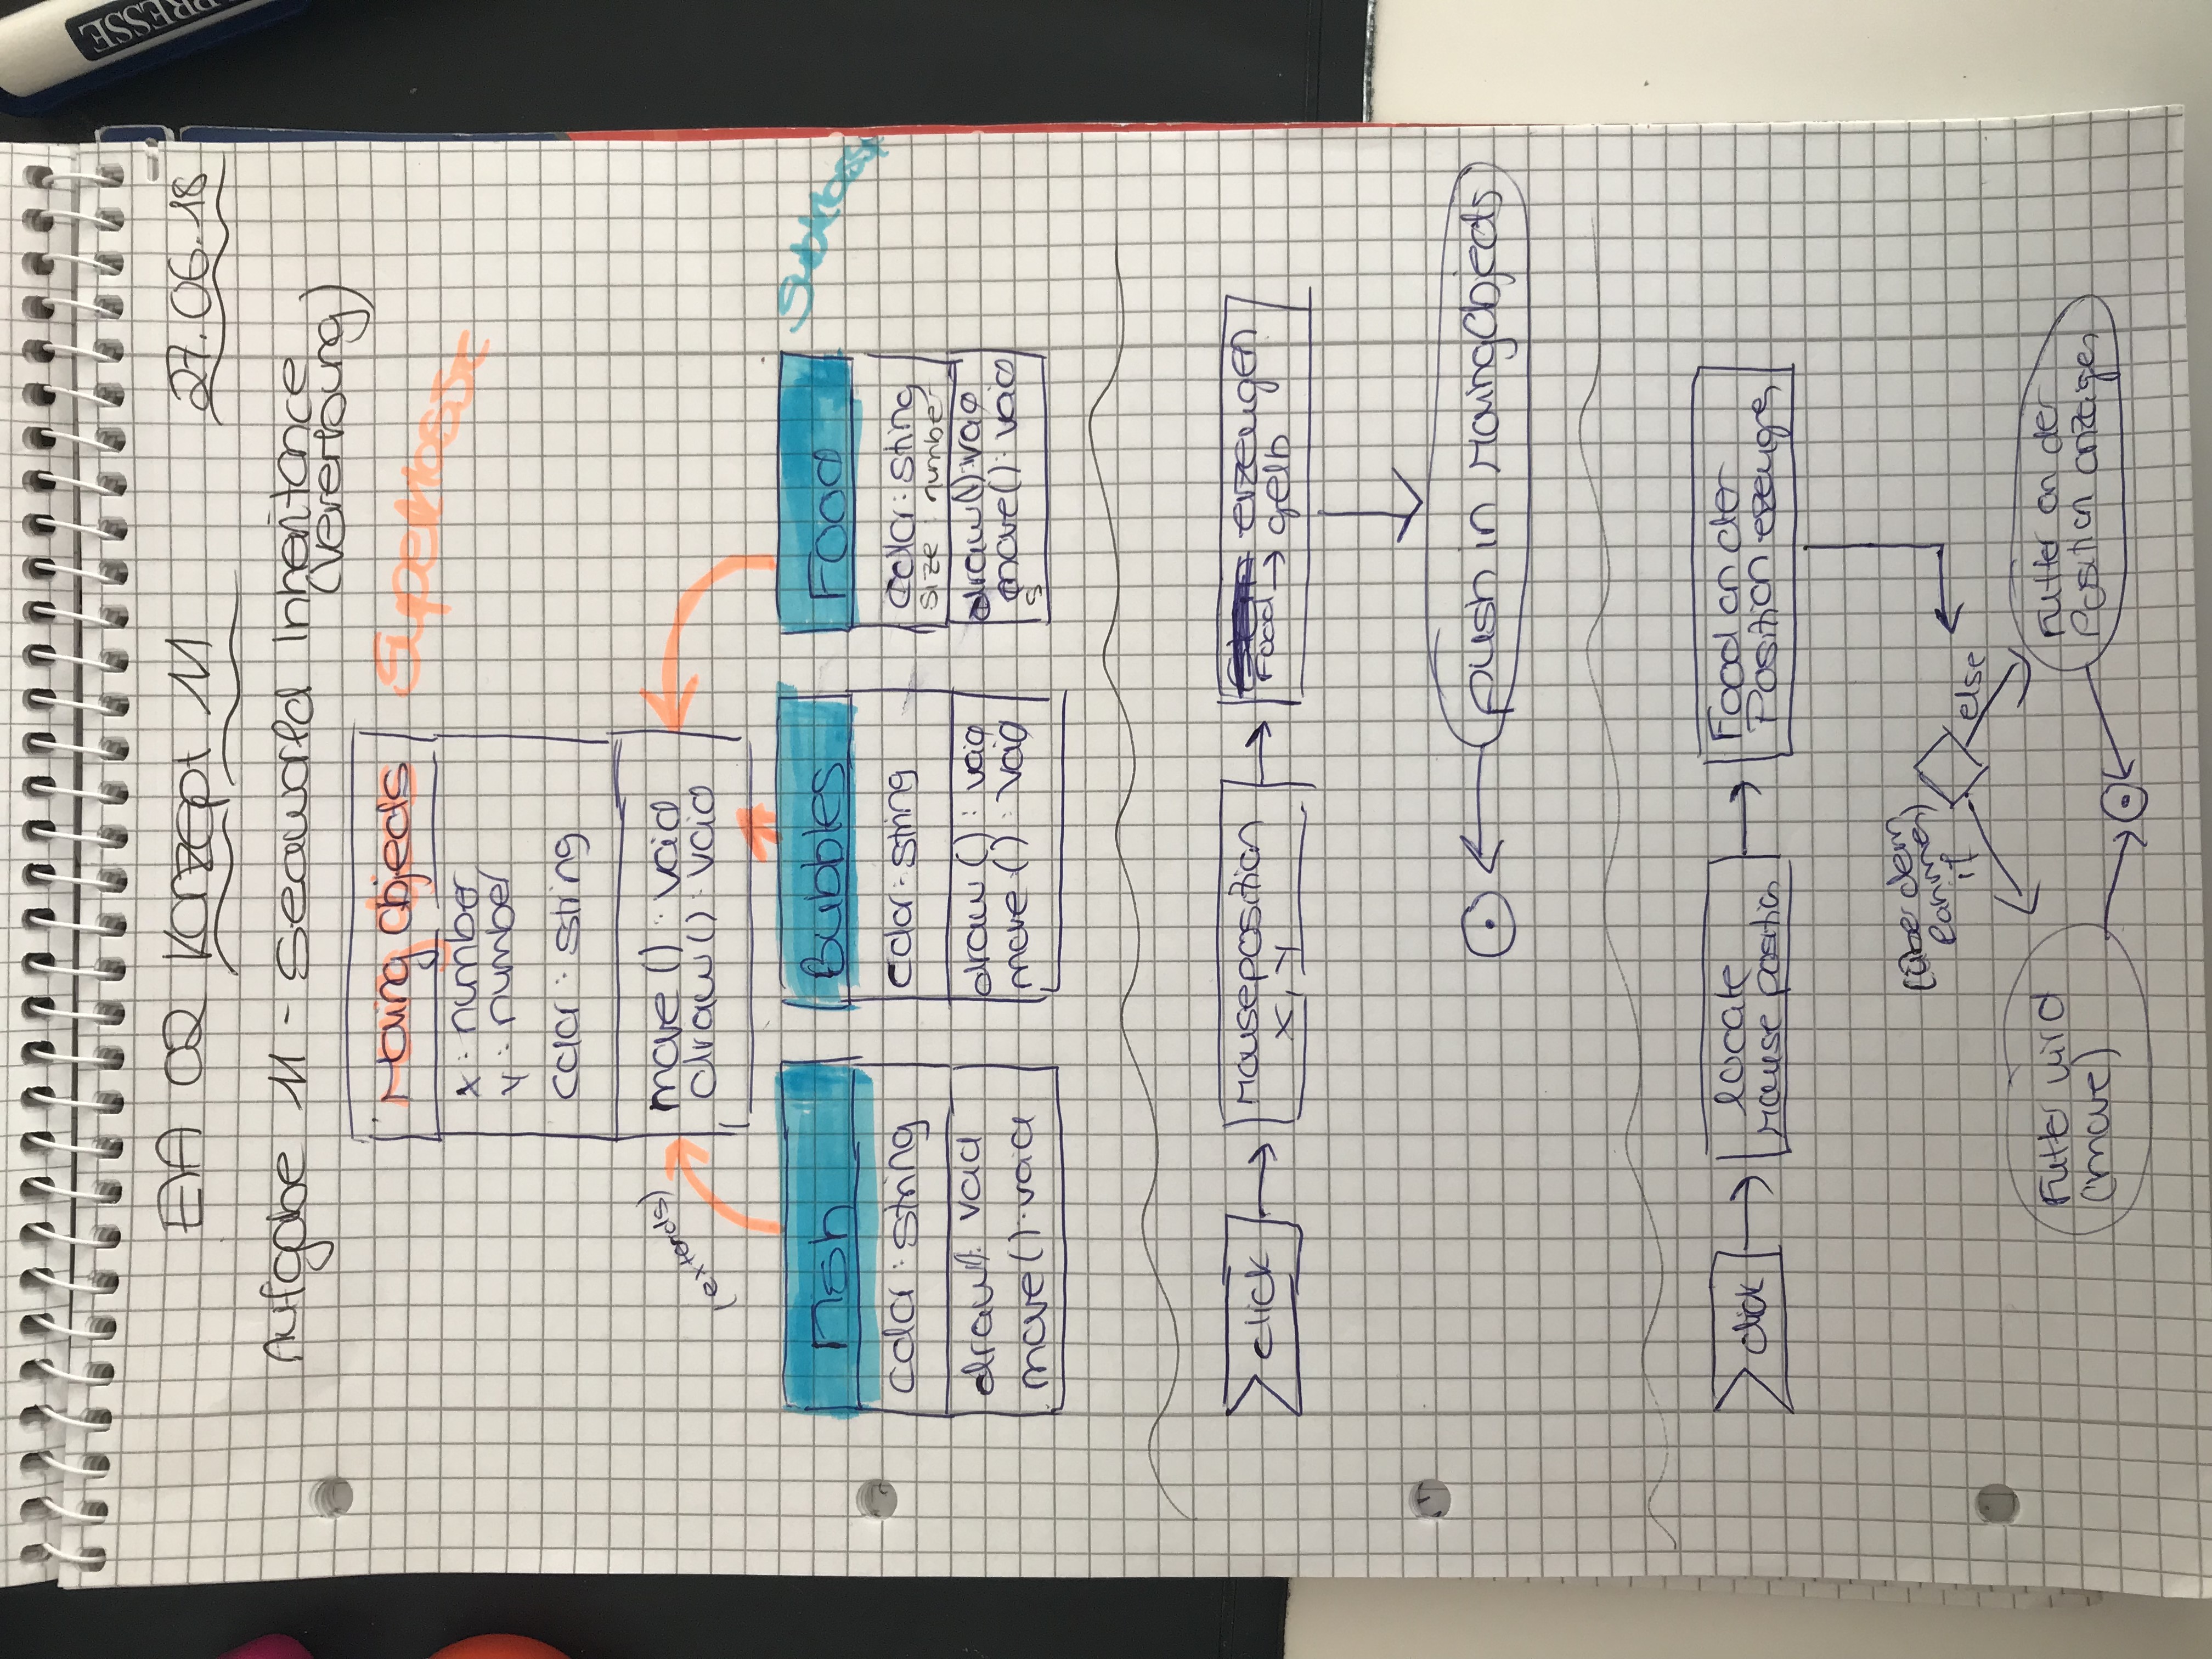 EIA 02 Konzept 11 27.06.18
Aufgabe 11 - Seaworld Inheritance
(Vererbung)
Moving Objects
Superklasse
x : number
y : number
color : string
(extends)
move () : void
draw () : void
Fish
Bubbles
Food
Subklasse
color : string
draw() : void
move() : void
color : string
draw () : void
move () : void
color : string
size : number
draw() : void
move() : void
s
click
Mouseposition
x, y
erzeugen
Food → gelb
push in MovingObjects
click
locate
Mouse position
Food an der
Position erzeugen
(über dem
if
else
Futter wird
(move)
Futter an der
Position anzeigen
RESSE